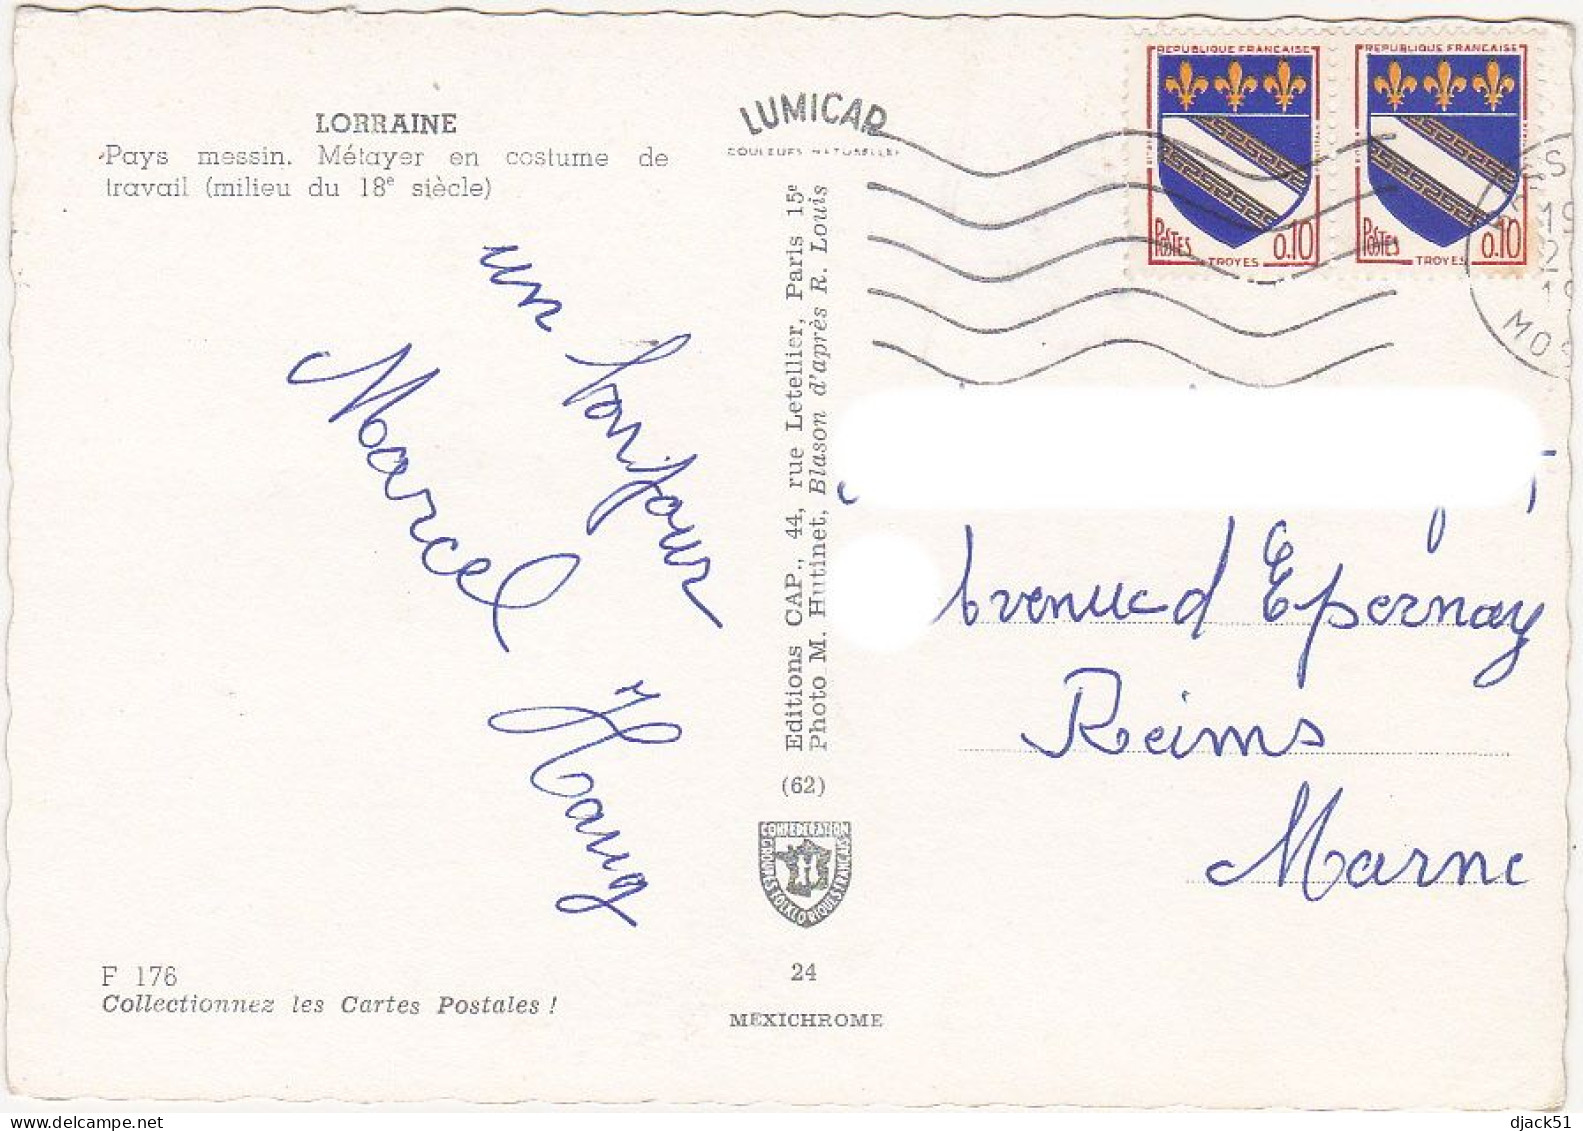 LORRAINE
Pays messin. Métayer en costume de
travail (milieu du 18e siècle)
un bonjour
Marcel Haug
F 176
Collectionnez les Cartes Postales !
LUMICAP
COULEURS NATURELLES
Editions CAP., 44, rue Letellier, Paris 15e
Photo M. Hutinet, Blason d'après R. Louis
(62)
CONFEDERATION
GROUPES FOLKLORIQUES FRANÇAIS
24
MEXICHROME
REPUBLIQUE FRANCAISE
POSTES 0.10
TROYES
REPUBLIQUE FRANCAISE
POSTES 0.10
TROYES
Avenue d Epernay
Reims
Marne
djack51